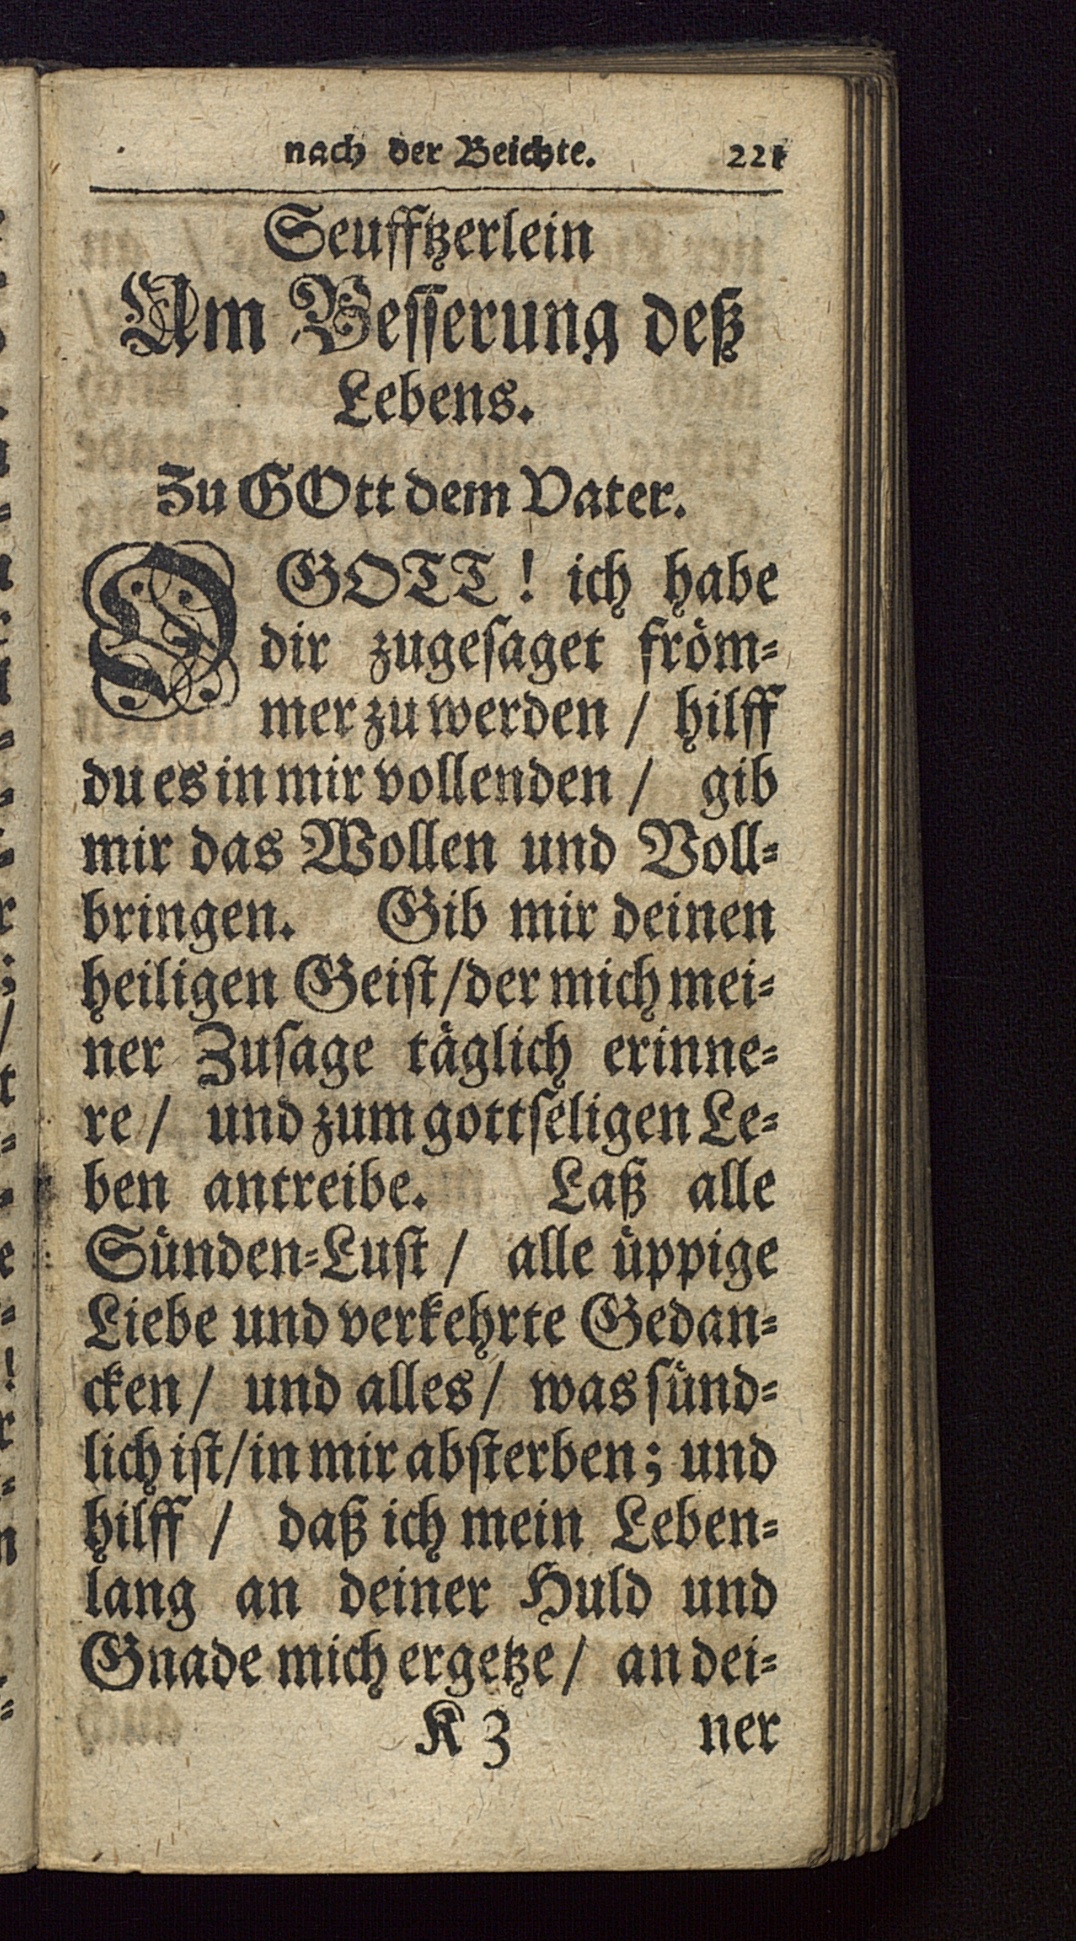 nach der Beichte. 221
Seufftzerlein
Um Besserung deß
Lebens.
Zu GOtt dem Vater.
O GOTT! ich habe
dir zugesaget fröm-
mer zu werden / hilff
du es in mir vollenden / gib
mir das Wollen und Voll-
bringen. Gib mir deinen
heiligen Geist / der mich mei-
ner Zusage täglich erinne-
re / und zum gottseligen Le-
ben antreibe. Laß alle
Sünden-Lust / alle üppige
Liebe und verkehrte Gedan-
cken / und alles / was sünd-
lich ist / in mir absterben; und
hilff / daß ich mein Leben-
lang an deiner Huld und
Gnade mich ergetze / an dei-
K 3 ner